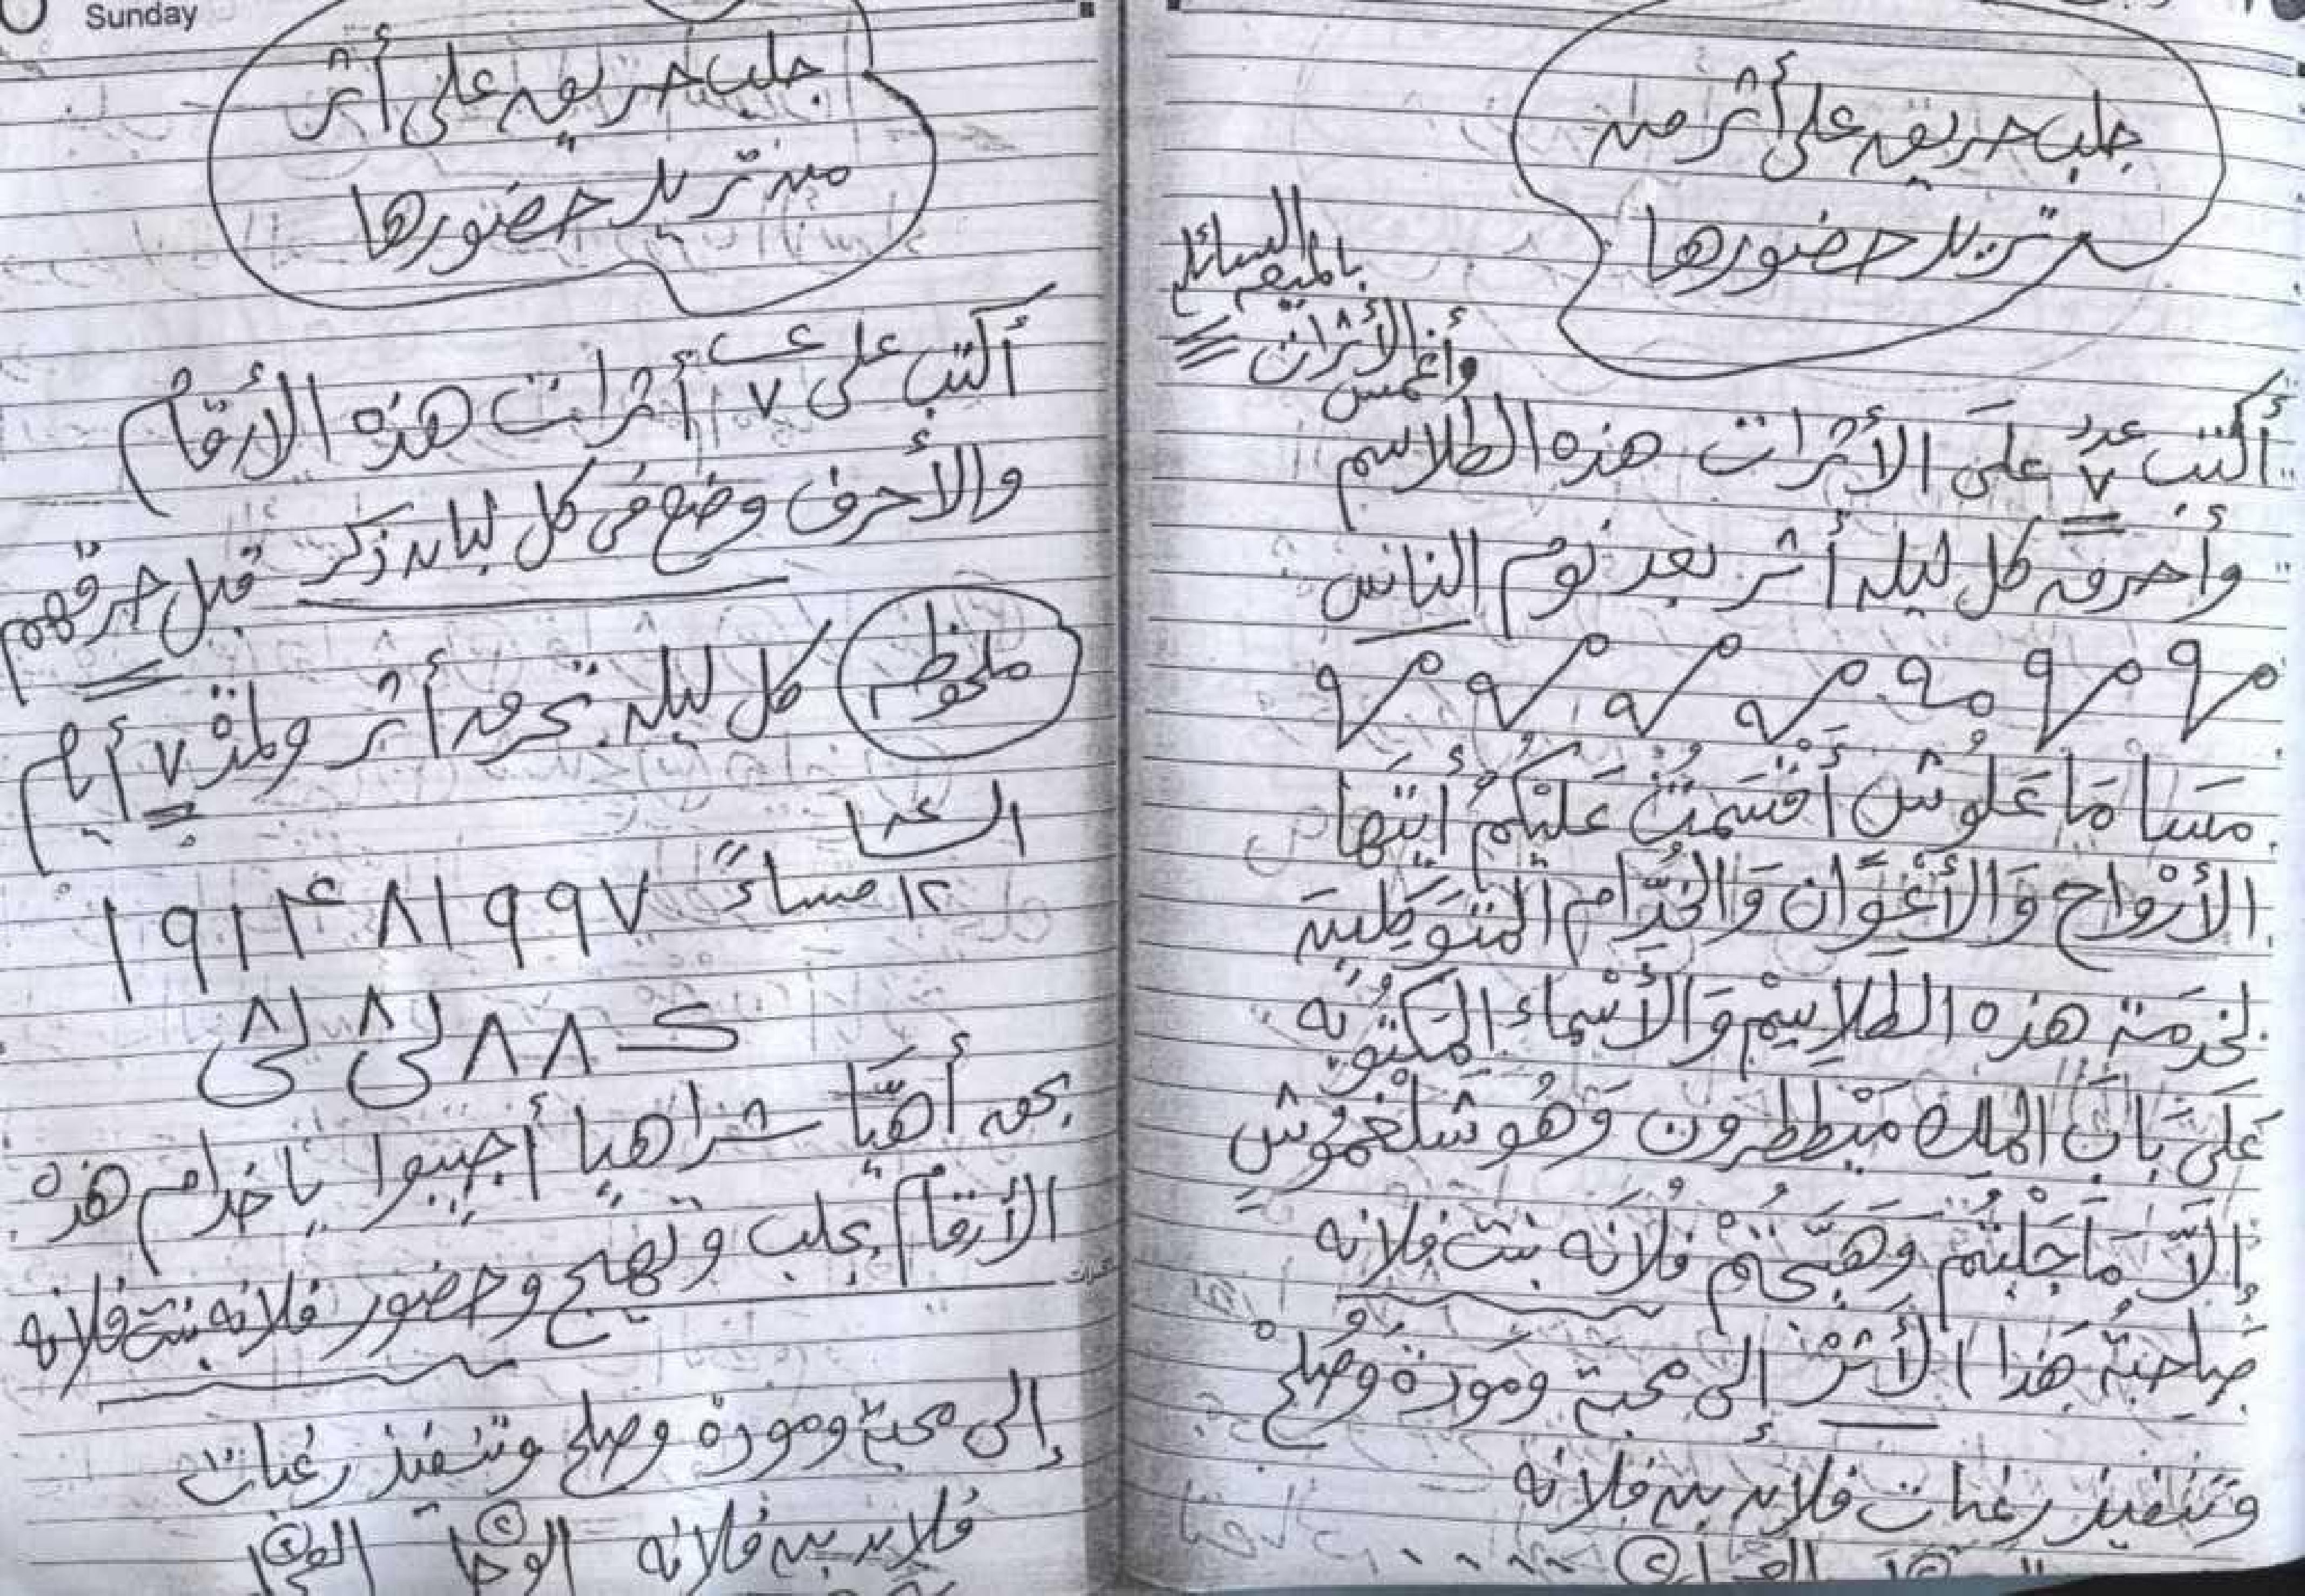 جلب حريق على أثر من
تريد حضورها
بالميعه السائله
وأغمس الأثرات
أكتب عدد ٧ على الأثرات هذه الطلاسم
وأحرق كل ليله أثر بعد نوم الناس
مسا ما علوش أقسمت عليكم أيتها
الأرواح والأعوان والخدام المتوكلين
لخدمة هذه الطلاسم والأسماء المكتوبه
على باب الملك ميططرون وهو شلغموش
إلا ما جلبتم وهيجتم فلانه بنت فلانه
صاحبة هذا الأثر إلى محبة ومودة وصلح
وتنفيذ رغبات فلان بن فلانه
Sunday
جلب حريق على أثر
من تريد حضورها
أكتب على ٧ أثرات هذه الأرقام
والأحرف وضع فى كل لبان ذكر قبل حرقهم
ملحوظه كل ليله تحرق أثر ولمدة ٧ أيام
١٢ مساءً ١٩١١٤٨١٩٩٧
بحق أهيا شراهيا أجيبوا يا خدام هذه
الأرقام بجلب وتهيج وحضور فلانه بنت فلانه
إلى محبة ومودة وصلح وتنفيذ رغبات
فلان بن فلانه الوحا ٢ ٢